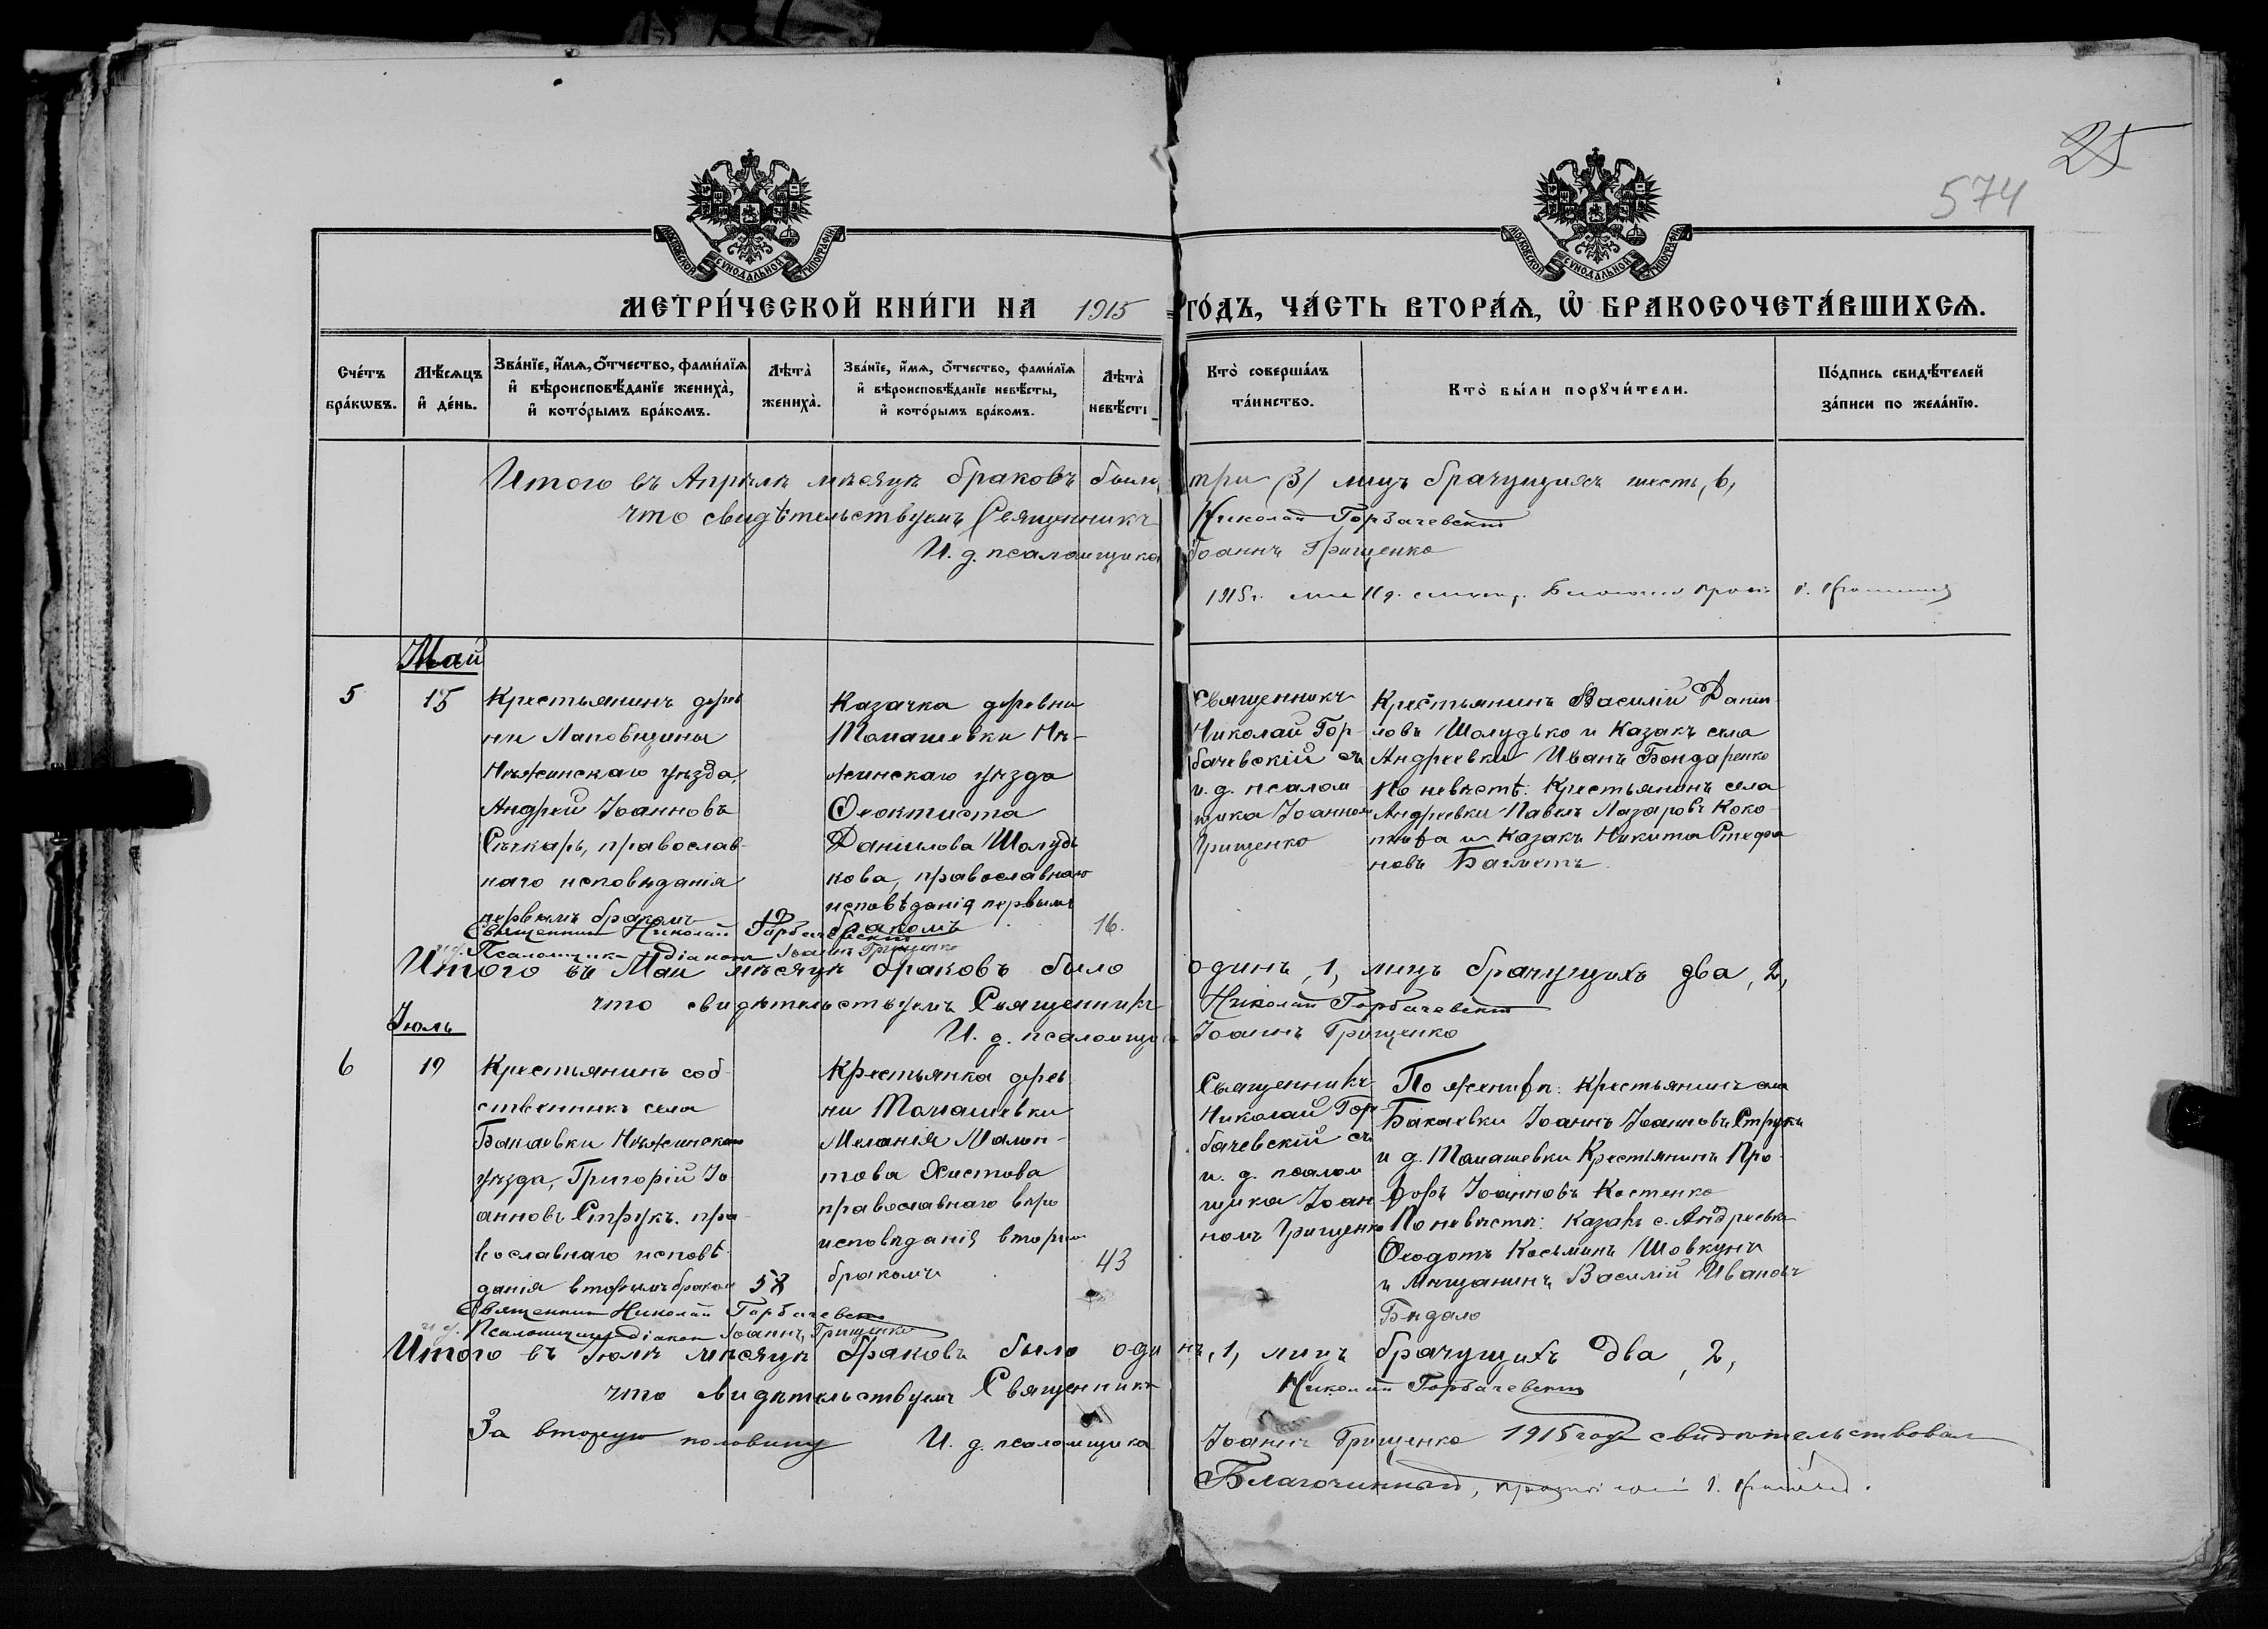 25
574
МОСКОВСКОЙ СѴНОДАЛЬНОЙ ТИПОГРАФІИ
МОСКОВСКОЙ СѴНОДАЛЬНОЙ ТИПОГРАФІИ
МЕТРИ́ЧЕСКОЙ КНИ́ГИ НА 1915 ГО́ДЪ, ЧА́СТЬ ВТОРА́Ѧ, Ѡ҆ БРАКОСОЧЕТА́ВШИХСѦ.
Сче́тъ бра́кѡвъ.
Мѣ́сѧцъ и҆ де́нь.
Зва́нїе, и҆́мѧ, ѻ҆́тчество, фами́лїѧ
и҆ вѣроисповѣ́данїе жениха̀,
и҆ кото́рымъ бра́комъ.
Лѣта̀ жениха̀.
Зва́нїе, и҆́мѧ, ѻ҆́тчество, фами́лїѧ
и҆ вѣроисповѣ́данїе невѣ́сты,
и҆ кото́рымъ бра́комъ.
Лѣта̀ невѣ́сты
Кто̀ соверша́лъ
та́инство.
Кто̀ бы́ли порꙋчи́тели.
По́дпись свидѣ́телей
за́писи по жела́нїю.
Итого въ Апрѣлѣ мѣсяцѣ браковъ было три (3) лицъ брачущихся шесть, 6,
что свидѣтельствуемъ Священникъ Николай Горбачевскій
И. д. псаломщика Іоаннъ Грищенко
1915 г.
Май
5
15
Крестьянинъ дерев
ни Лаповщины
Нѣжинскаго уѣзда,
Андрей Іоанновъ
Сѣчкарь, православ-
наго исповѣданія
первымъ бракомъ
19
Казачка деревни
Томашевки Нѣ-
жинскаго уѣзда
Ѳеоктиста
Даніилова Шолудь
кова, православнаго
исповѣданія первымъ
бракомъ
16.
Священникъ
Николай Гор-
бачевскій съ
и. д. псалом
щика Іоанном
Грищенко
Крестьянинъ Василій Даніи-
ловъ Шолудько и Казакъ села
Андреевки Иванъ Бондаренко
По невѣстѣ: Крестьянинъ села
Андреевки Павелъ Лазаровъ Коко-
и Казакъ Никита Стефа
новъ
Священникъ Николай Горбачевскій
и. д. Псаломщика діаконъ Іоаннъ Грищенко
Итого въ Маи мѣсяцѣ браковъ было одинъ, 1, лицъ брачущихъ два, 2,
что свидѣтельствуемъ Священникъ Николай Горбачевскій
И. д. псаломщика Іоаннъ Грищенко
Іюль
6
19
Крестьянинъ соб-
ственникъ села
Бакаевки Нѣжинскаго
уѣзда, Григорій Іо-
анновъ Струкъ. пра-
вославнаго исповѣ-
данія вторымъ браком
58
Крестьянка дерев
ни Томашевки
Меланія Малон-
това Хистова
православнаго вѣро
исповѣданія вторым
бракомъ
43
Священникъ
Николай Гор-
бачевскій съ
и. д. псалом
щика Іоан
номъ Грищенко
По женихѣ: Крестьянинъ села
Бакаевки Іоаннъ Іоанновъ Струкъ
и д. Томашевки Крестьянинъ Про-
хоръ Іоанновъ Костенко
По невѣстѣ: Казакъ с. Андреевки
Ѳеодотъ Косьминъ Шовкунъ
и Мѣщанинъ Василій Ивановъ
Бѣдало
Священникъ Николай Горбачевскій
и. д. Псаломщика діаконъ Іоаннъ Грищенко
Итого въ Іюлѣ мѣсяцѣ браковъ было одинъ, 1, лицъ брачущихъ два, 2,
что свидѣтельствуемъ Священникъ Николай Горбачевскій
И. д. псаломщика Іоаннъ Грищенко
За вторую половину 1915 года свидѣтельствовалъ
Благочинный,